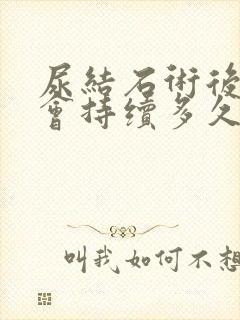 尿結石術後
會持續多久
叫我如何不想